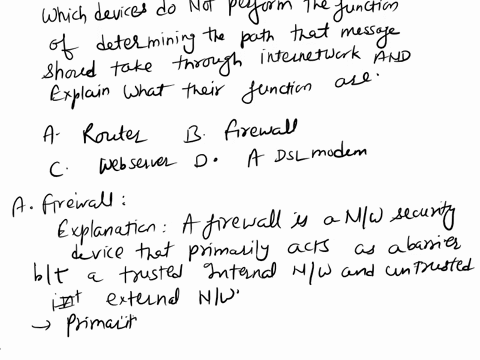 Which devices do Not perform the function
of determining the path that message
should take through internetwork AND
Explain what their function are.
A. Router B. Firewall
C. Webserver D. A DSL modem
A. Firewall:
Explanation: A firewall is a N/W security
device that primarily acts as a barrier
b/t a trusted Internal N/W and untrusted
external N/W.
→ Primarit